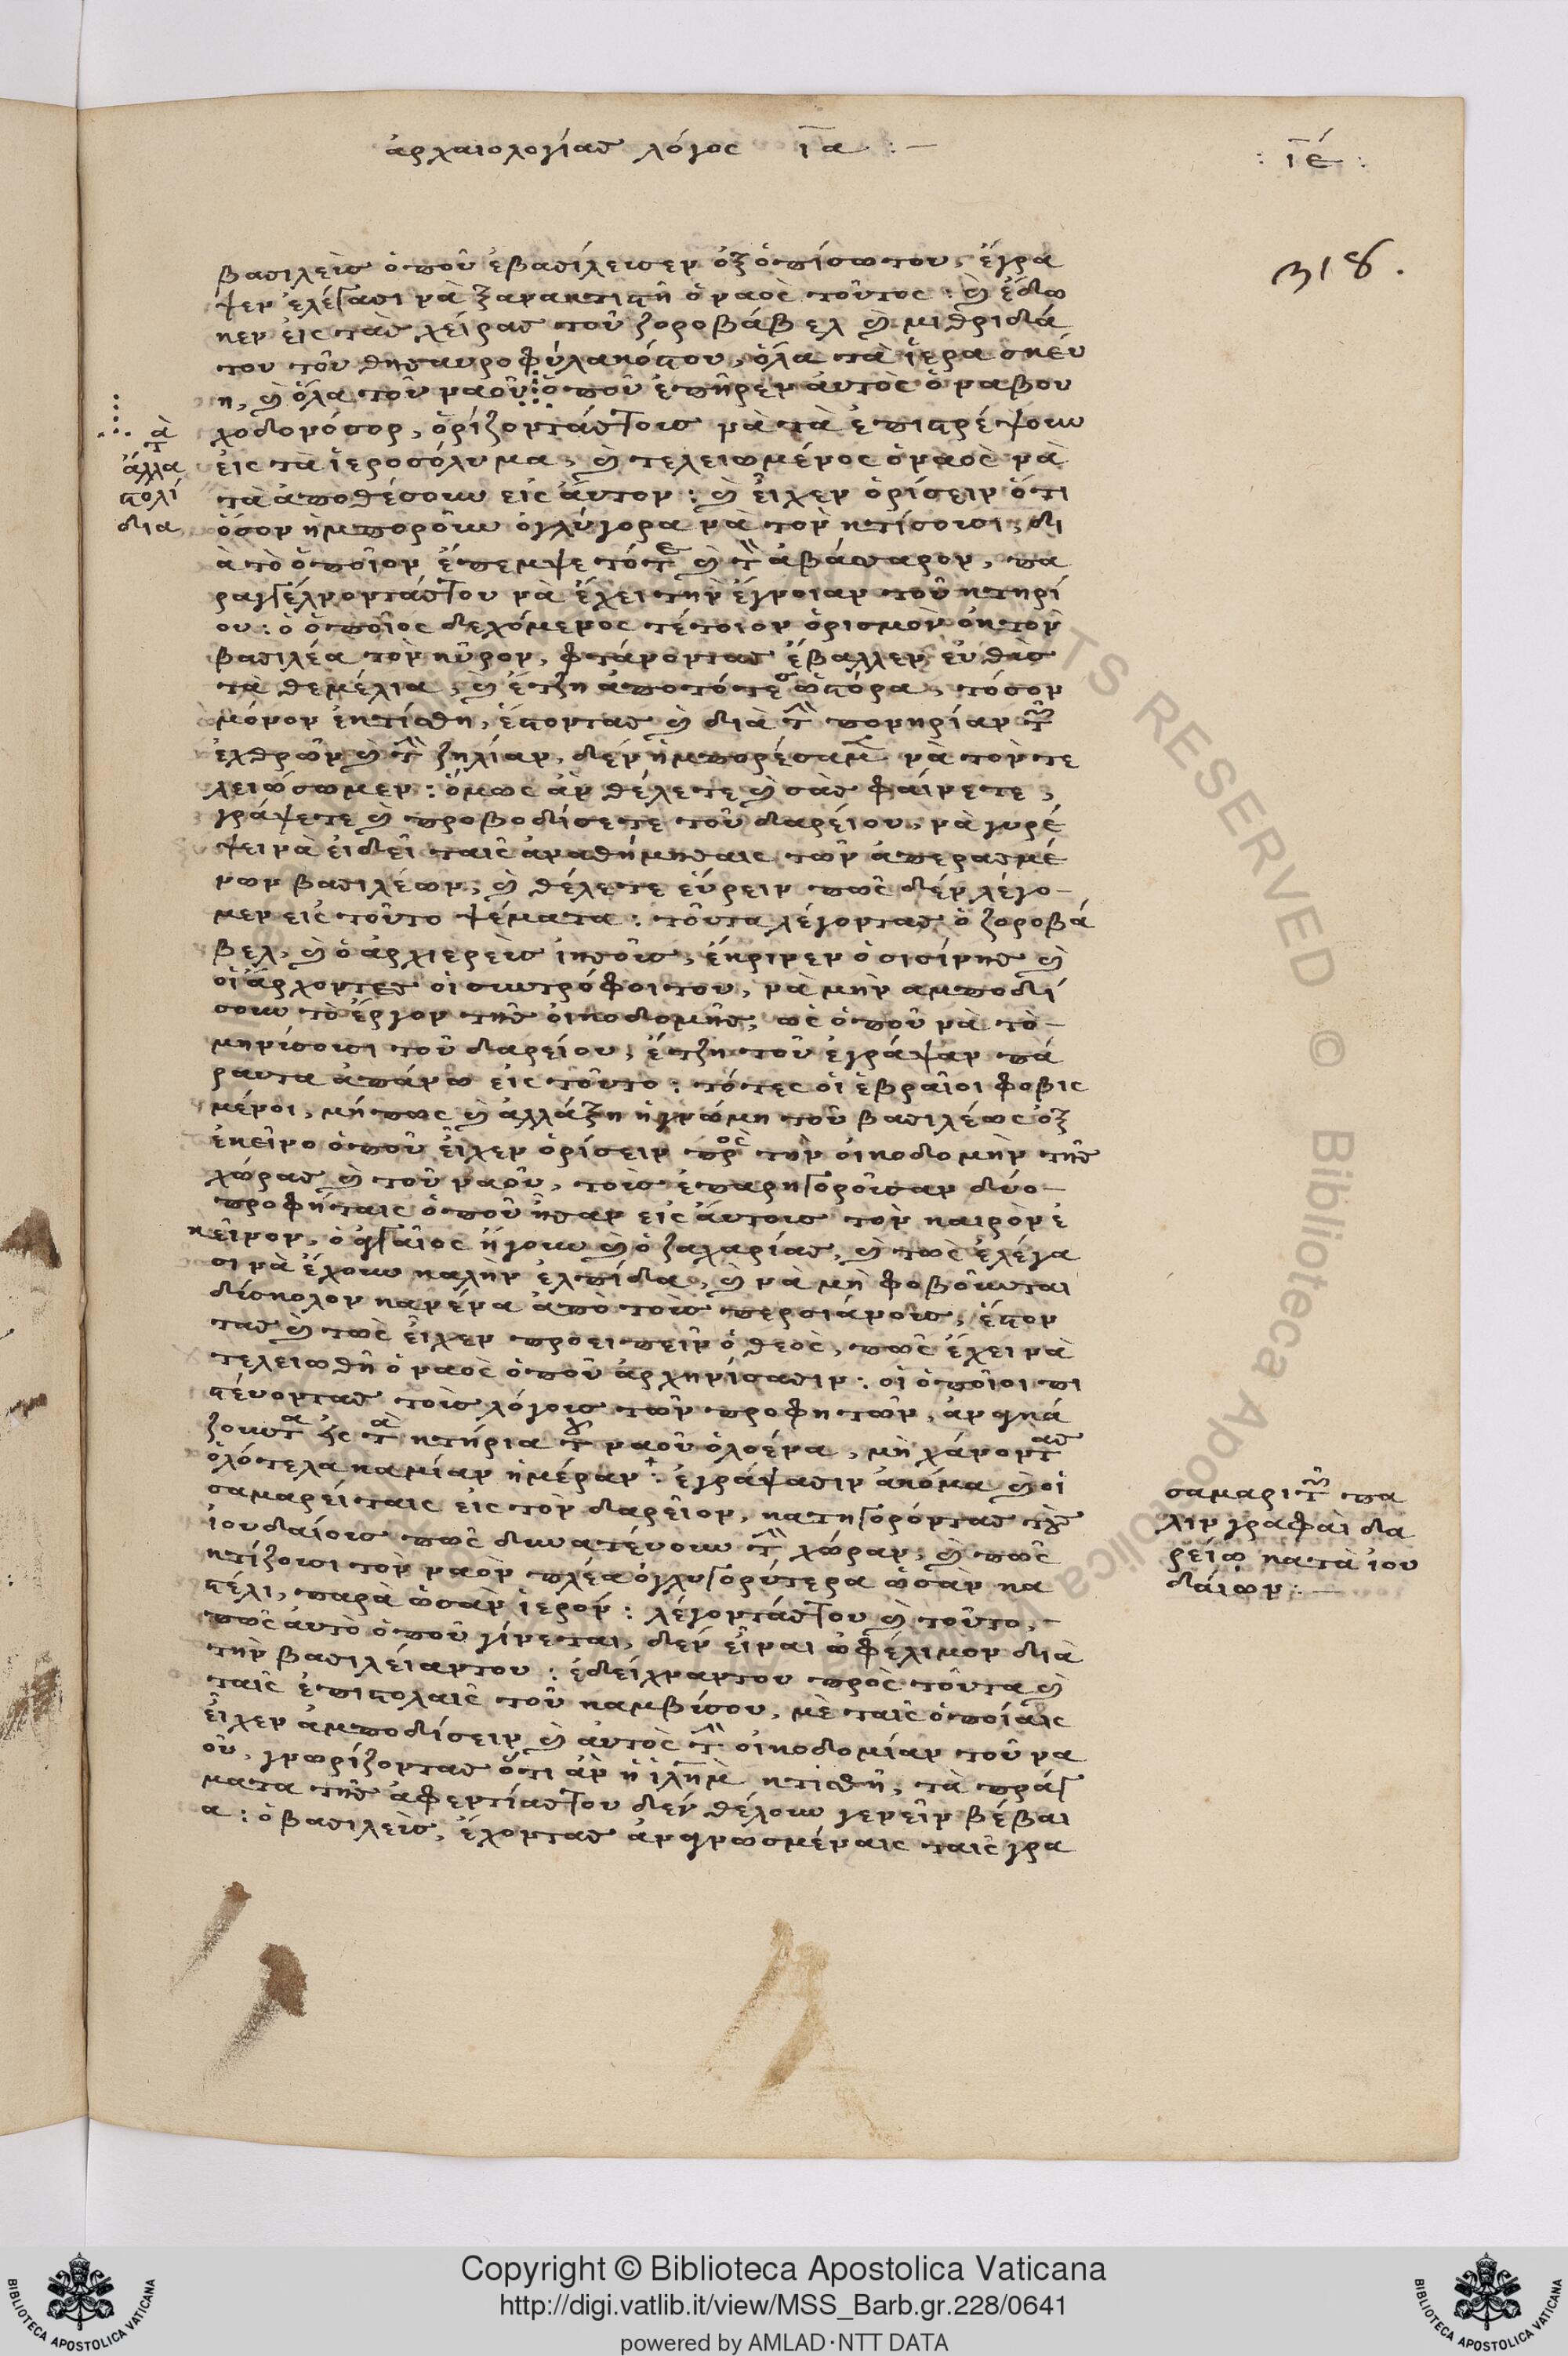 ἀρχαιολογίας λόγος ια :—
: ιέ :
318.
βασιλεὺς ὁποῦ ἐβασίλευσεν ὀξοπίσωτου, ἔγρα
ψεν ἐλέγασι νὰ ξανακτιστῆ ὁ ναὸς τοῦτος : καὶ ἔδω
κεν εἰς τὰς χεῖρας τοῦ ζοροβάβελ καὶ μιθριδά
του τοῦ θησαυροφύλακόστου, ὅλα τὰ ἱερα σκεύ
η, καὶ ὅλα τοῦ ναοῦ ὁποῦ ἐπῆρεν ἀυτὸς ὁ ναβου
χοδονόσορ, ὁρίζοντάςτους νὰ τὰ ἐπιστρέψουν
εἰς τὰ ἱεροσόλυμα, καὶ τελειωμένος ὁ ναὸς νὰ
τὰ ἀποθέσουν εἰς ἄυτον : καὶ εἶχεν ὁρίσειν ὅτι
ὅσον ἠμποροῦν ὀγλύγορα νὰ τὸν κτίσουσι, δι
ὰ τὸ ὁποῖον ἔπεμψε τότε καὶ τὸν ἀβάσσαρον, πα
ραγγέλνοντάςτου νὰ ἔχει τὴν ἔγνοιαν τοῦ κτηρί
ου : ὁ ὁποῖος δεχόμενος τέτοιον ὁρισμὸν ὀκτὸν
βασιλέα τὸν κῦρον, φτάνοντας ἔβαλλεν εὐθὺς
τὰ θεμέλια, καὶ ἔτζη ἀποτότες ὡςτόρα, τόσον
μόνον ἐκτίσθη, ἔστοντας καὶ διὰ τὴν πονηρίαν τῶν
ἐχθρῶν καὶ τὴν ζηλίαν, δὲν ἠμπορέσαμεν νὰ τὸν τε
λειώσωμεν : ὅμως ἂν θέλετε καὶ σὰς φαίνετε,
γράψετε καὶ προβοδίσετε τοῦ δαρείου, νὰ γυρέ
ψει νὰ εἰδεῖ ταῖς ἀναθήμησαις τῶν ἀπερασμέ
νων βασιλέων, καὶ θέλετε εὕρειν πῶς δὲν λέγο—
μεν εἰς τοῦτο ψέματα : τοῦτα λέγοντας ὁ ζοροβά
βελ, καὶ ὁ ἀρχιερεὺς ἰησοῦς, ἔκρινεν ὁ σισίνης καὶ
οἱ ἄρχοντες οἱ συντρόφοι του, νὰ μὴν αμποδί
σουν τὸ ἔργον τῆς ὀικοδομῆς, ὡς ὁποῦ νὰ τὸ—
μηνύσουσι τοῦ δαρείου, ἔτζη τοῦ ἐγράψαν πά
ραυτα ἀπάνω εἰς τοῦτο : τότες οἱ ἑβραῖοι φοβισ
μένοι, μήπως καὶ ἀλλάξη ἡ γνώμη τοῦ βασιλέως ὀξ
ἐκεῖνο ὁποῦ εἶχεν ὁρίσειν πρὸς τὴν οἰκοδομὴν τῆς
χώρας καὶ τοῦ ναοῦ, τοὺς ἐπαρηγοροῦσαν δύο—
προφήταις ὁποῦ ἦσαν εἰς ἄυτους τὸν καιρὸν ἐ
κεῖνον, ὁ ἀγγαῖος ἤγουν καὶ ὁ ζαχαρίας, καὶ τῶς ἐλέγα
σι νὰ ἔχουν καλὴν ἐλπίδα, καὶ νὰ μὴ φοβοῦνται
δίσκολον κανένα ἀπὸ τοὺς περσιάνους, ἔστον
τας καὶ τῶς εἶχεν προειπεῖν ὁ θεὸς, πῶς ἔχει νὰ
τελειωθῆ ὁ ναὸς ὁποῦ ἀρχηνίσασιν : οἱ ὁποῖοι πι
στένοντας τοὺς λόγους τῶν προφητῶν, ἀναγκά
ζουντα εἰς τὰ κτήρια τοῦ ναοῦ ὁλοένα, μὴ χάνοντας
ὁλότελα καμίαν ἡμέραν : ἐγράψασιν ἀκόμα καὶ οἱ
σαμαρείταις εἰς τὸν δαρεῖον, κατηγορόντας τοὺς
ἰουδαίους πῶς δυνατένουν τὴν χώραν, καὶ πῶς
κτίζουσι τὸν ναὸν πλέα ὀγλυγορύτερα ὡσὰν κα
στέλι, παρὰ ὡσὰν ἱερόν : λέγοντάςτου καὶ τοῦτο,—
πῶς ἀυτὸ ὁποῦ γίνεται, δὲν εἶναι ὠφέλιμον διὰ
τὴν βασιλείαντου : ἐδείχναντου πρὸς τοῦτα καὶ
ταῖς ἐπιστολαῖς τοῦ καμβίσου, μὲ ταῖς ὁποίαις
εἶχεν ἀμποδίσειν καὶ ἀυτὸς τὴν οἰκοδομίαν τοῦ να
οῦ, γνωρίζοντας ὅτι ἂν ἡ ἱλημ κτισθῆ, τὰ πράγ
ματα τῆς ἀφεντίαςτου δὲν θέλουν γενεῖν βέβαι
α : ὁ βασιλεὺς, ἔχοντας ἀναγνωσμέναις ταῖς γρα
τὰ
ἄλλα
στολί
δια
σαμαριτῶν πα
λιν γραφαὶ δα
ρείῳ κατὰ ἰου
δάιων :—
Copyright © Biblioteca Apostolica Vaticana
http://digi.vatlib.it/view/MSS_Barb.gr.228/0641
powered by AMLAD·NTT DATA
BIBLIOTECA APOSTOLICA VATICANA
BIBLIOTECA APOSTOLICA VATICANA